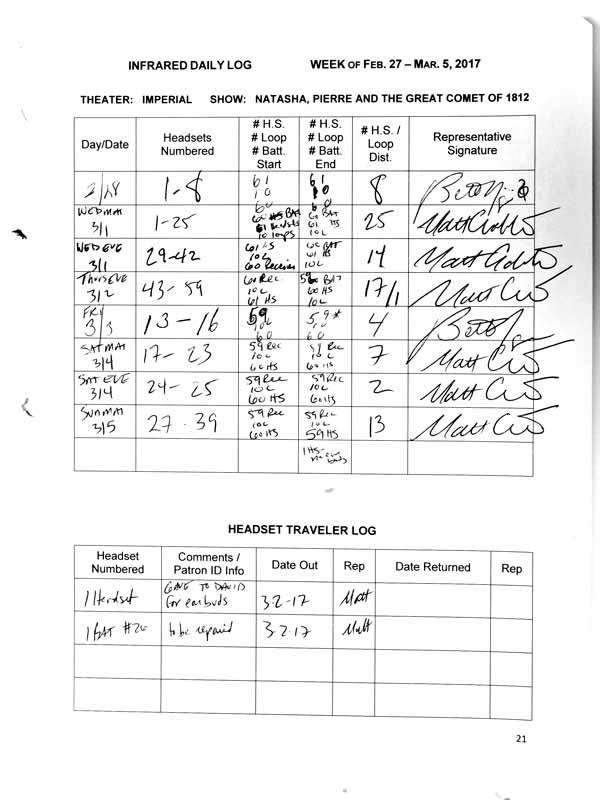 INFRARED DAILY LOG WEEK OF FEB. 27 – MAR. 5, 2017
THEATER: IMPERIAL SHOW: NATASHA, PIERRE AND THE GREAT COMET OF 1812
Day/Date Headsets Numbered # H.S. # Loop # Batt. Start # H.S. # Loop # Batt. End # H.S. / Loop Dist. Representative Signature
2/28 1-8 61 10 60 61 10 60 8
WED MAT 3/1 1-25 60 BAT 61 Headsets 10 loops 60 BAT 61 HS 10 L 25 Matt
WED EVE 3/1 29-42 61 HS 10L 60 60 BAT 61 HS 10L 14 Matt
THURS EVE 3/2 43-59 60 REC 10L 61 HS BAT 60 HS 10L 17/1 Matt
FRI 3/3 13-16 59 10L 60 59* 10L 60 4
SAT MAT 3/4 17-23 59 Rec 10L 60 HS 59 Rec 10L 60 HS 7 Matt
SAT EVE 3/4 24-25 59 Rec 10L 60 HS 59 Rec 10L 60 HS 2 Matt
SUN MAT 3/5 27-39 59 Rec 10L 60 HS 59 Rec 10L 59 HS 13 Matt
1 HS-
HEADSET TRAVELER LOG
Headset Numbered Comments / Patron ID Info Date Out Rep Date Returned Rep
1 Headset GAVE TO DAVID for earbuds 3-2-17 Matt
1 BAT #26 to be repaired 3-2-17 Matt
21